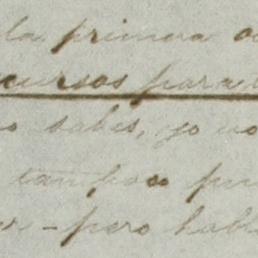 la primera
cursos para
sabes, yo no
tampoco
pero habl